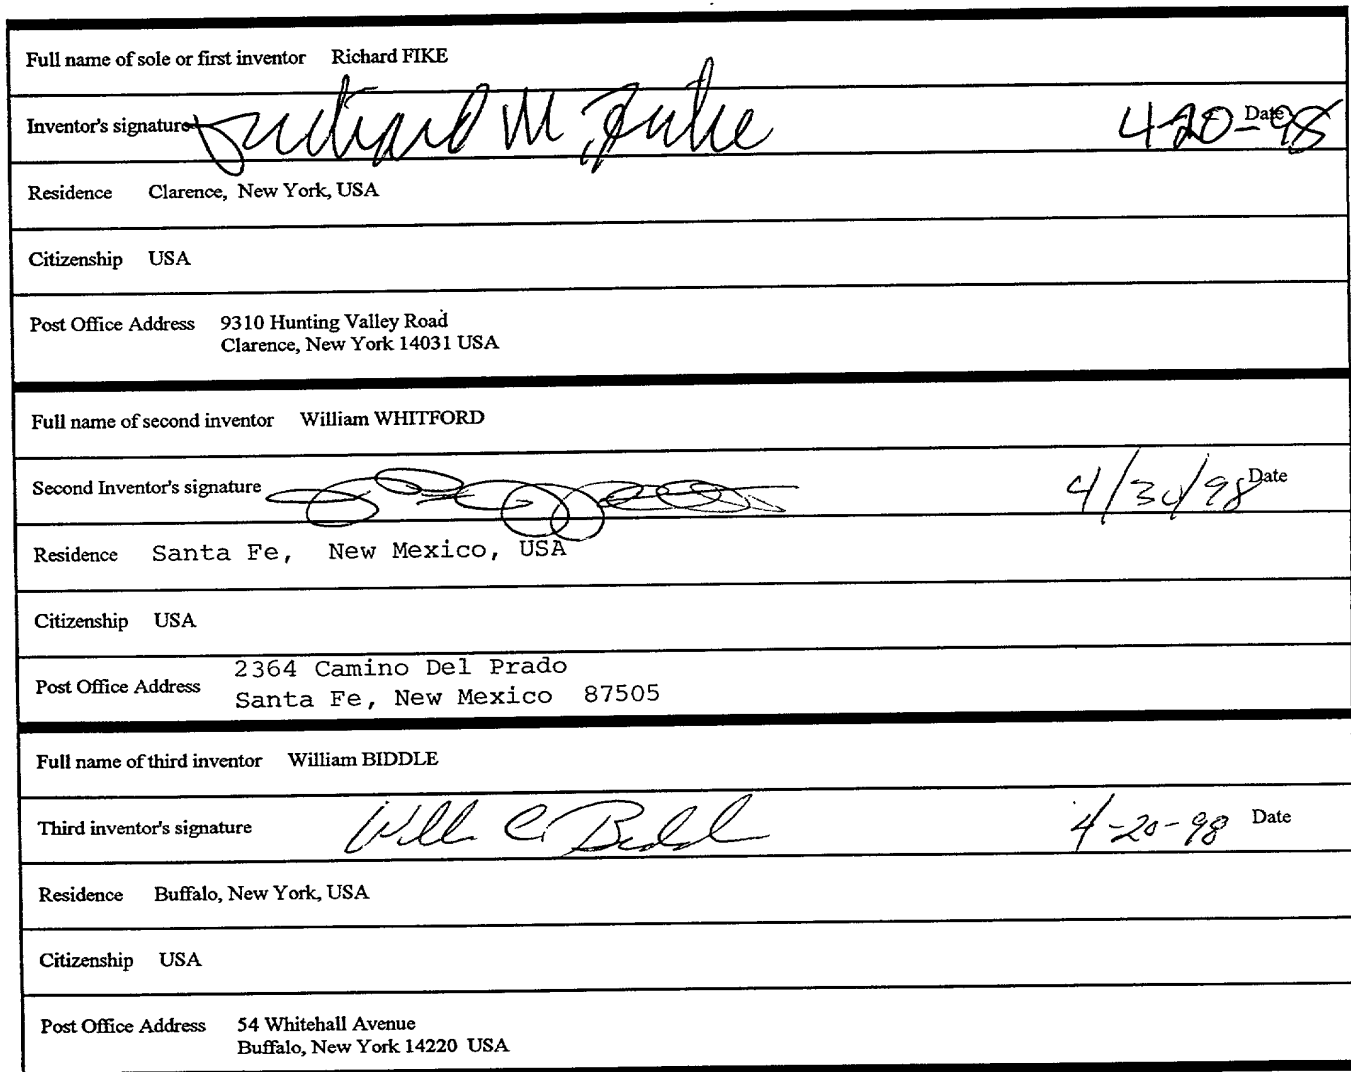 Full name of sole or first inventor Richard FIKE
Inventor's signature Richard M. Fike 4-20-98 Date
Residence Clarence, New York, USA
Citizenship USA
Post Office Address 9310 Hunting Valley Road
Clarence, New York 14031 USA
Full name of second inventor William WHITFORD
Second Inventor's signature 4/30/98 Date
Residence Santa Fe, New Mexico, USA
Citizenship USA
2364 Camino Del Prado
Post Office Address
Santa Fe, New Mexico 87505
Full name of third inventor William BIDDLE
Third inventor's signature Will C. Biddl 4-20-98 Date
Residence Buffalo, New York, USA
Citizenship USA
Post Office Address 54 Whitehall Avenue
Buffalo, New York 14220 USA